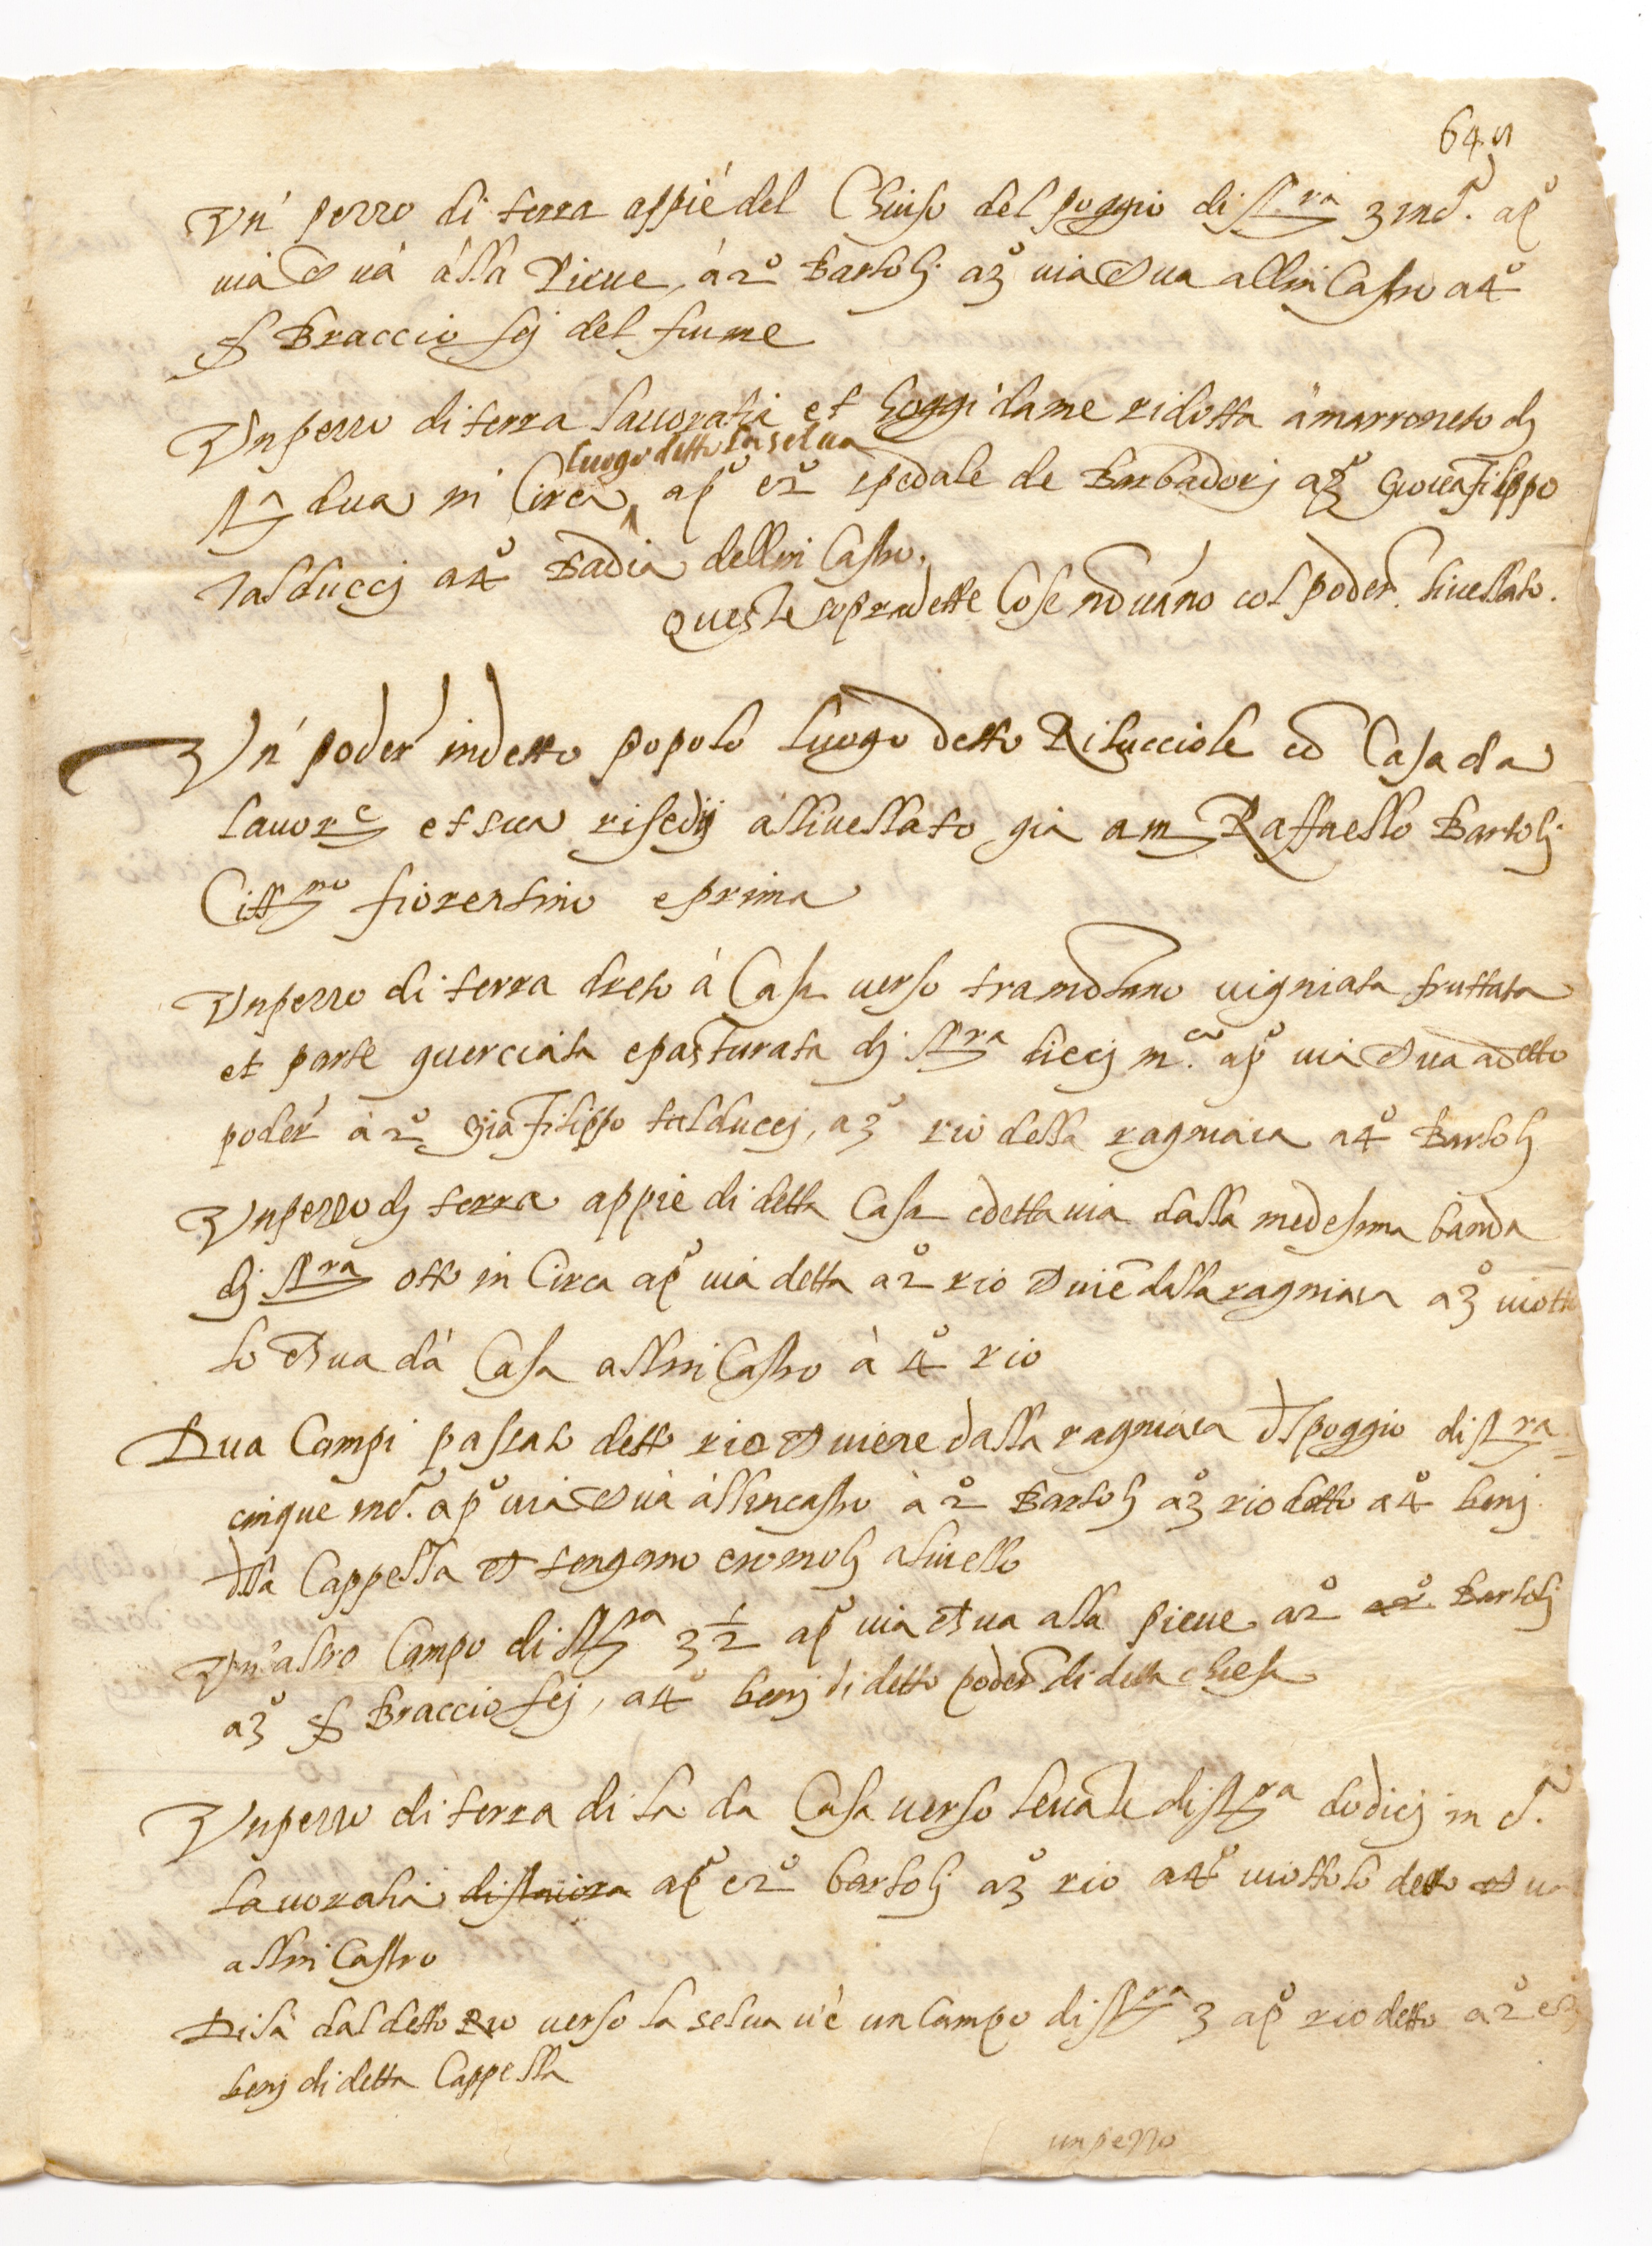 64
Un' pezzo di terra appiè del Chiuso del poggio di st.ra 3 inc.a a p.o
via ch va álla Pieve, á 2o Bartolj a 3o via ch va allin Castro a 4o
S Braccio sej del fiume
Un pezzo di terra lavoratia et hoggi dame ridotta á marroneto dj
luogo detto la selva
st.a dua in Circa a p.o e 2o spedale de Barbadorj a 3o Giovafilippo
Talduccj a 4o Badia dellin Castro.
Queste sopradette Cose nō vāno col poder. livellato.
Un' poder' in detto popolo luogo detto Rilucciole cō Casa da
lavor.e et sua risedij allivellato già a m Raffaello Bartolj
Citt.no fiorentino e prima
Un pezzo di terra dreto á Casa verso tramōtano vigniata fruttata
et parte querciata e pasturata dj st.ra diecj in c.a a p.o via ch va a detto
poder' á 2o gia filippo talduccj, a 3o rio della ragniaia a 4o Bartolj
Un pezzo dj terra appiè di detta Casa e detta via dalla medesima banda
dj st.ra otto in Circa a p.o via detta a 2o rio ch viē dalla ragniaia a 3o viotto
lo ch va dà Casa allin Castro à 4o rio
Dua Campi passato detto rio ch viene dalla ragniaia dl poggio di st.ra
cinque inc.a a p.o via ch và állincastro à 2o Bartolj a 3o rio detto a 4o benj
dlla Cappella ch tengano cromolj a livello
Un' altro Campo di st.ra 3 1/2 a p.o via ch va alla pieve a 2o a 2o Bartolj
a 3o S Braccio sej, a 4o benj di detto poder di detta chiesa
Un pezzo di terra di la da Casa verso levāte di st.ra dodicj in c.a
lavoratia di staiora a p.o e 2o bartolj a 3o rio a 4o viottolo detto ch va
allin Castro
Di là dal detto Rio verso la selva v'è un Campo di st.ra 3 a p.o rio detto a 2o e 3o
benj di detta Cappella
un pezzo